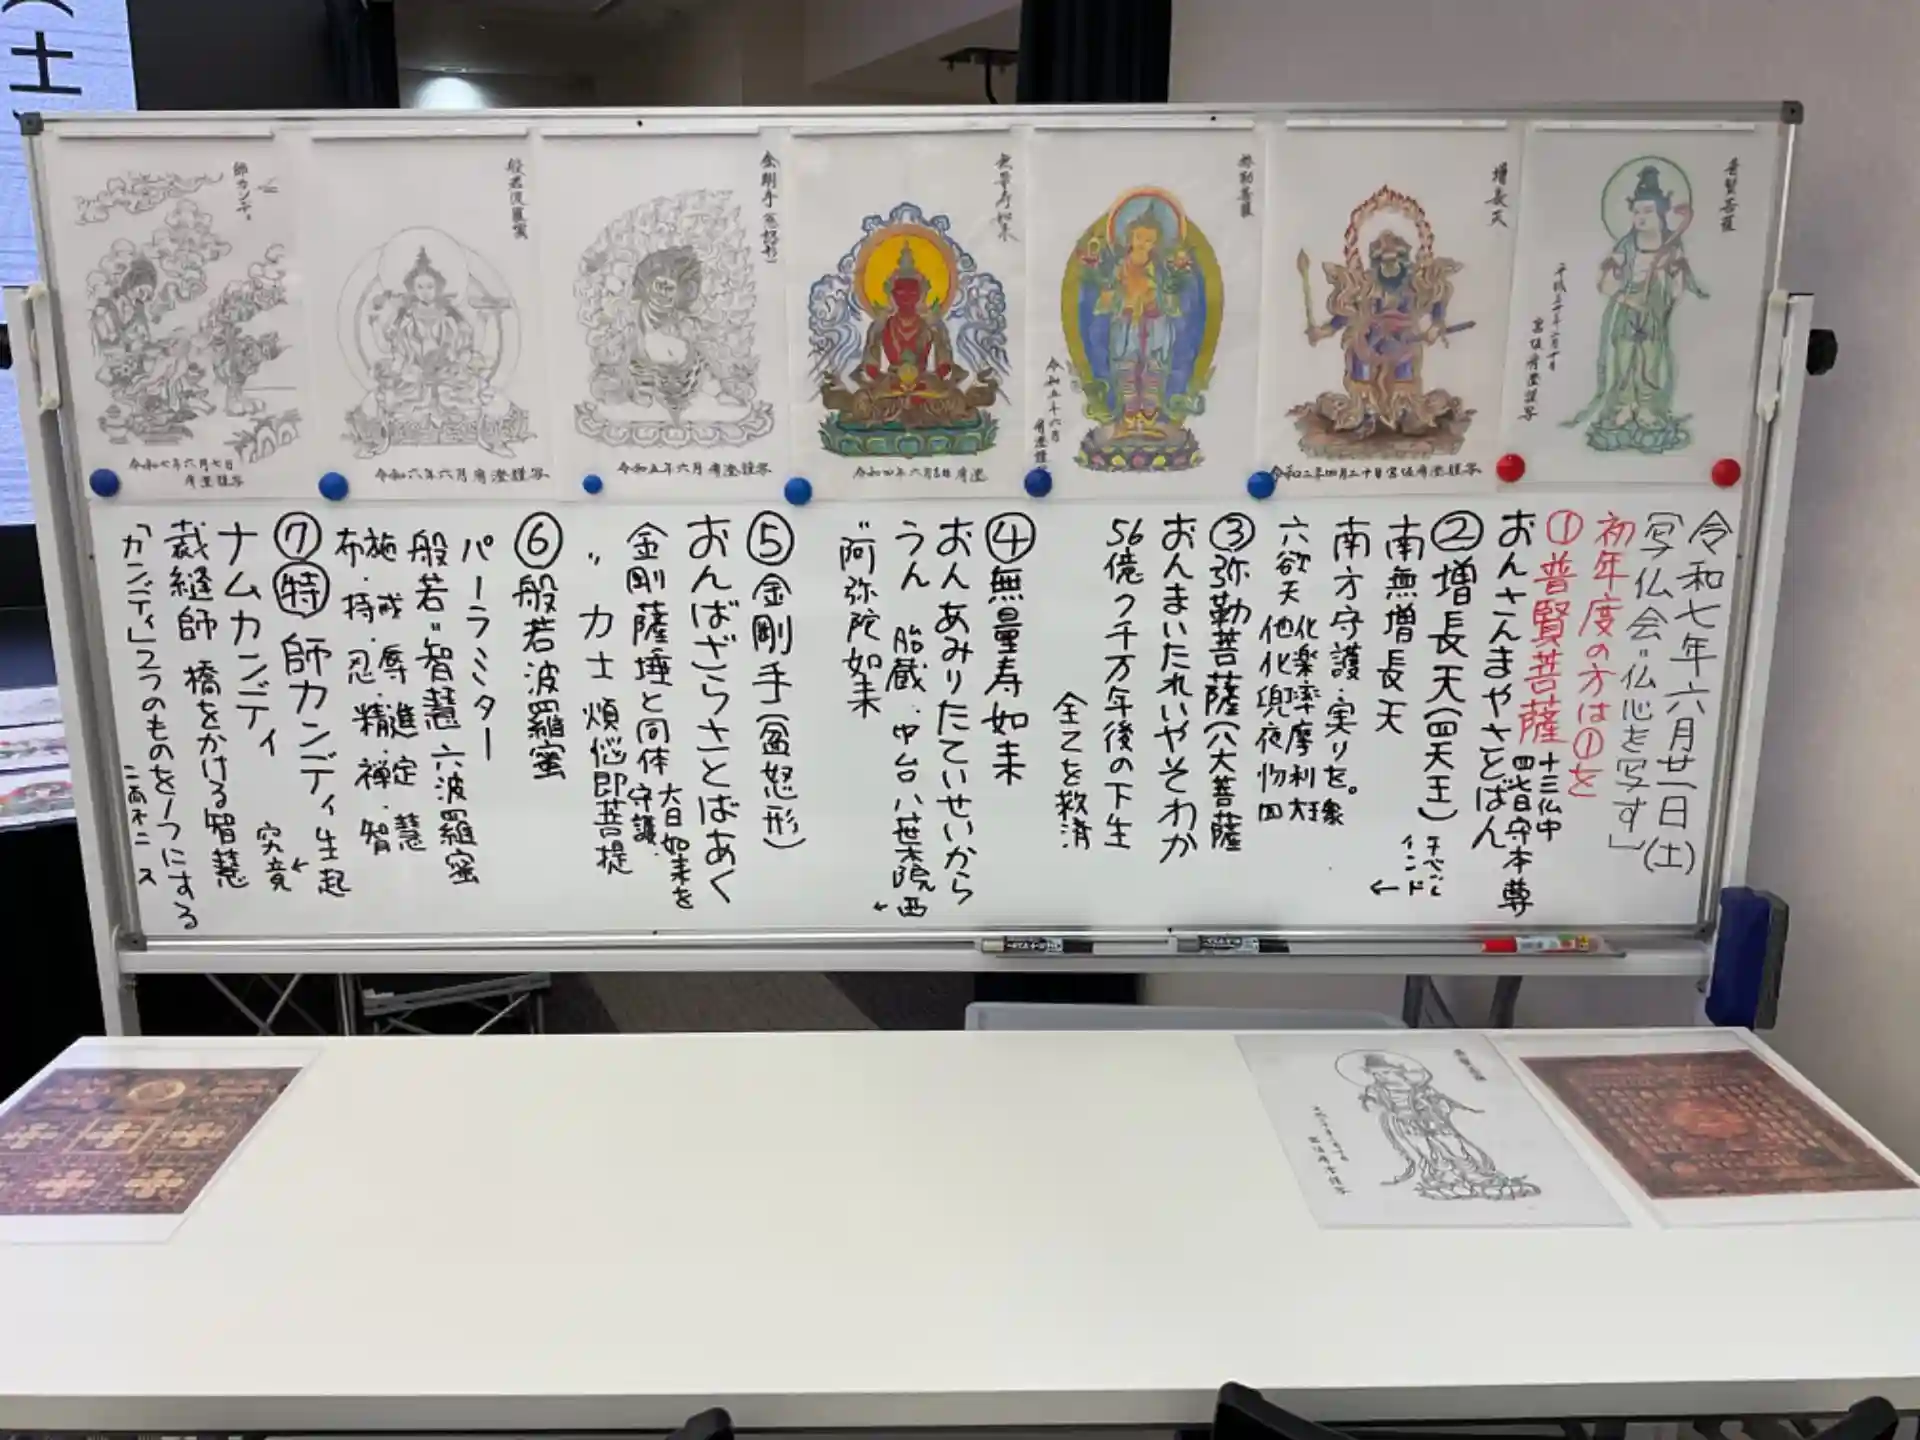 令和七年六月廿一日(土)
写仏会"仏心を写す」
初年度の方は①を
①普賢菩薩 十三仏中
四番目守本尊
おんさんまやさとばん
②増長天(四天王)
南無増長天
インド
南方守護・実りを。
六欲天
③弥勒菩薩(八大菩薩
おんまいたれいやそわか
56億7千万年後の下生
全てを救済
④無量寿如来
おんあみりたていせいから
うん 胎蔵・中台八葉院 西
"阿弥陀如来
⑤金剛手(忿怒形)
おんばざらさとばあく
金剛薩埵と同体 大日如来を
守護
〃 力士 煩悩即菩提
⑥般若波羅蜜
パーラミター
般若"智慧 六波羅蜜
施・戒・辱・進・定・慧
布・持・忍・精・禅・智
⑦特 師カンディ 生起
究竟
ナムカンディ
裁縫師 橋をかける智慧
「カンディ」2つのものを1つにする
普賢菩薩
増長天
令和二年四月二十日宮坂宥澄謹写
弥勒菩薩
令和五年六月
宥澄謹写
無量寿如来
金剛手(忿怒形)
令和五年六月宥澄謹写
般若波羅蜜
令和六年六月宥澄謹写
師カンディ
令和七年六月七日
宥澄謹写
土